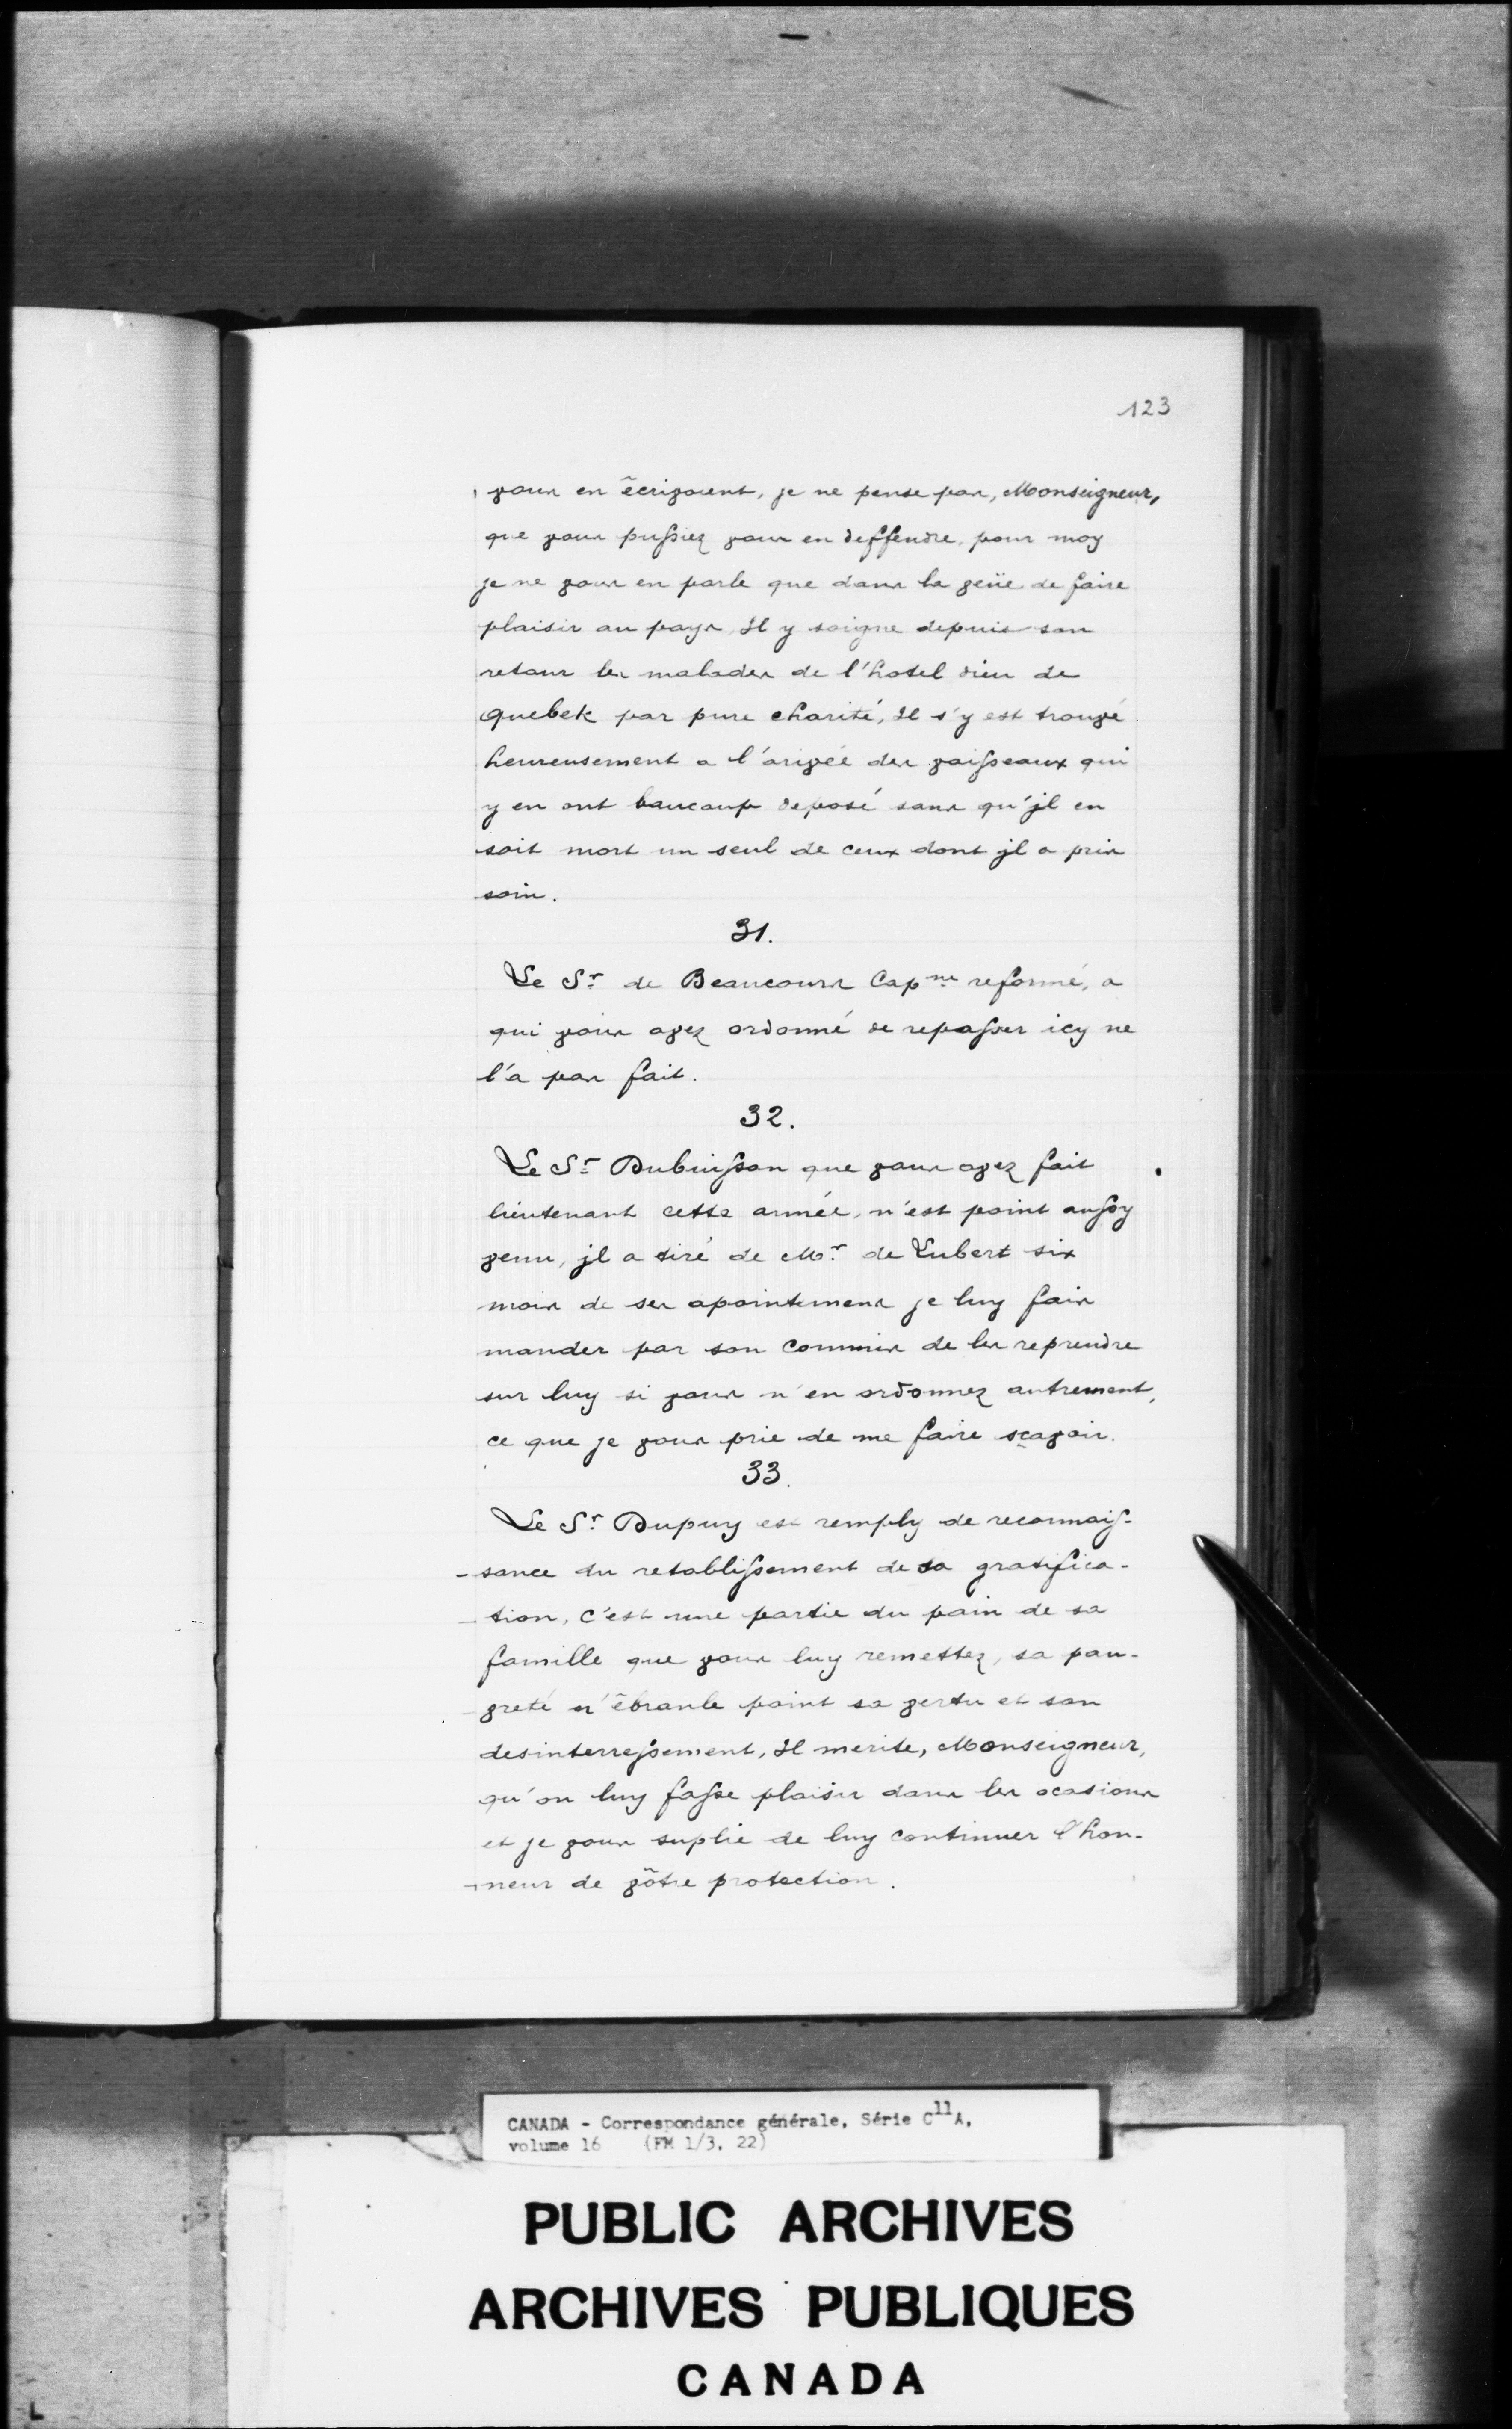 123
vous en êcrivoient, je ne pense pas, Monseigneur,
que vous pussiez vous en deffendre, pour moy
je ne vous en parle que dans la veüe de faire
plaisir au pays, Il y soigne depuis son
retour les malades de l'hotel dieu de
Quebek par pure charité, Il s'y est trouvé
heureusement a l'arivée des vaisseaux qui
y en ont baucoup deposé sans qu'jl en
soit mort un seul de ceux dont jl a pris
soin.
31.
Le Sr. de Beaucours Capne reformé, a
qui vous avez ordonné de repasser icy ne
l'a pas fait.
32.
Le Sr. Dubuisson que vous avez fait
lieutenant cette année, n'est point aussy
venu, jl a tiré de Mr. de Lubert six
mois de ses apointemens je luy fais
mander par son Commis de les reprendre
sur luy si vous n'en ordonnez autrement,
ce que je vous prie de me faire sçavoir.
33.
Le Sr. Dupuy est remply de reconnois-
-sance du retablissement de sa gratifica-
-tion, c'est une partie du pain de sa
famille que vous luy remettez, sa pau-
vreté n'êbranle point sa vertu et son
desinterressement, Il merite, Monseigneur,
qu'on luy fasse plaisir dans les ocasions
et je vous suplie de luy continuer l'hon-
-neur de vôtre protection.
CANADA - Correspondance générale, Série C11A,
volume 16 (FM 1/3, 22)
PUBLIC ARCHIVES
ARCHIVES PUBLIQUES
CANADA
L